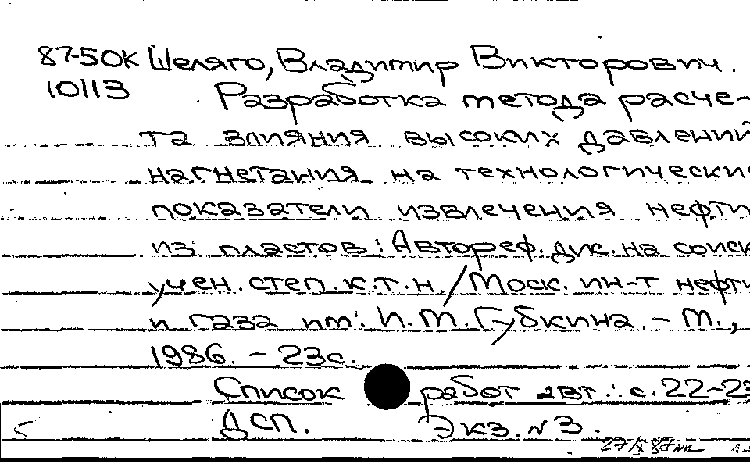 87-50К Шеляго, Владимир Викторович.
10113 Разработка метода расче-
та влияния высоких давлений
нагнетания на технологические
показатели извлечения нефти
из пластов: Автореф. дис. на соиск.
учен. степ. к.т.н. / Моск. ин-т нефти
и газа им. И.М. Губкина. - М.,
1986. - 23с.
Список работ авт.: с.22-23
ДСП. Экз.№3.